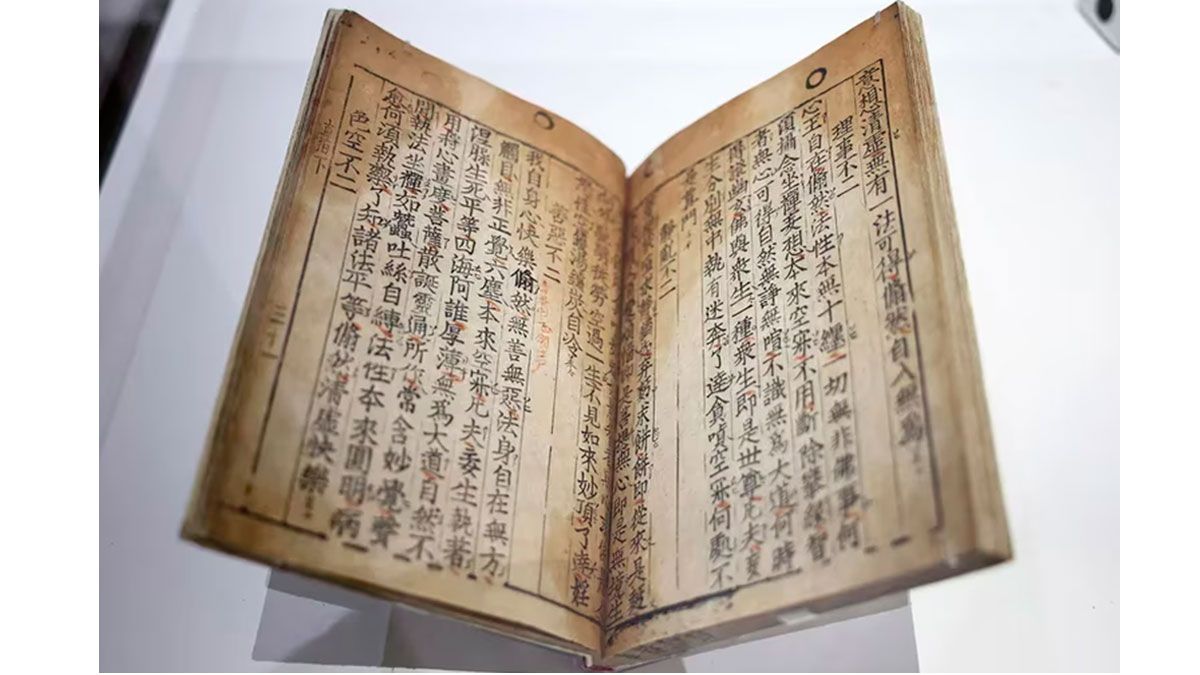 意想清虛無有一法可得翛然自入無爲
理事不二
心王自在翛然法性本無十纏一切無非佛事何
須攝念坐禪妄想本來空寂不用斷除攀緣智
者無心可得自然無諍無喧不識無爲大道何時
得證幽玄佛與衆生一種衆生即是世尊凡夫妄
生分別無中執有迷奔了達貪嗔空寂何處不
是眞門
靜亂不二
求餠餠即從來是麵
是菩提無心即是無
勞空過一生不見如來妙頂了
鑊湯爐炭自冷
善惡不二
我自身心快樂翛然無善無惡法身自在無方
觸目無非正覺六塵本來空寂凡夫妄生執著
涅槃生死平等四海阿誰厚薄無爲大道自然不
用將心畫度菩薩散誕靈通所作常含妙覺聲
聞執法坐禪如蠶吐絲自縛法性本來圓明病
愈何須執藥了知諸法平等翛然清虛快樂
色空不二